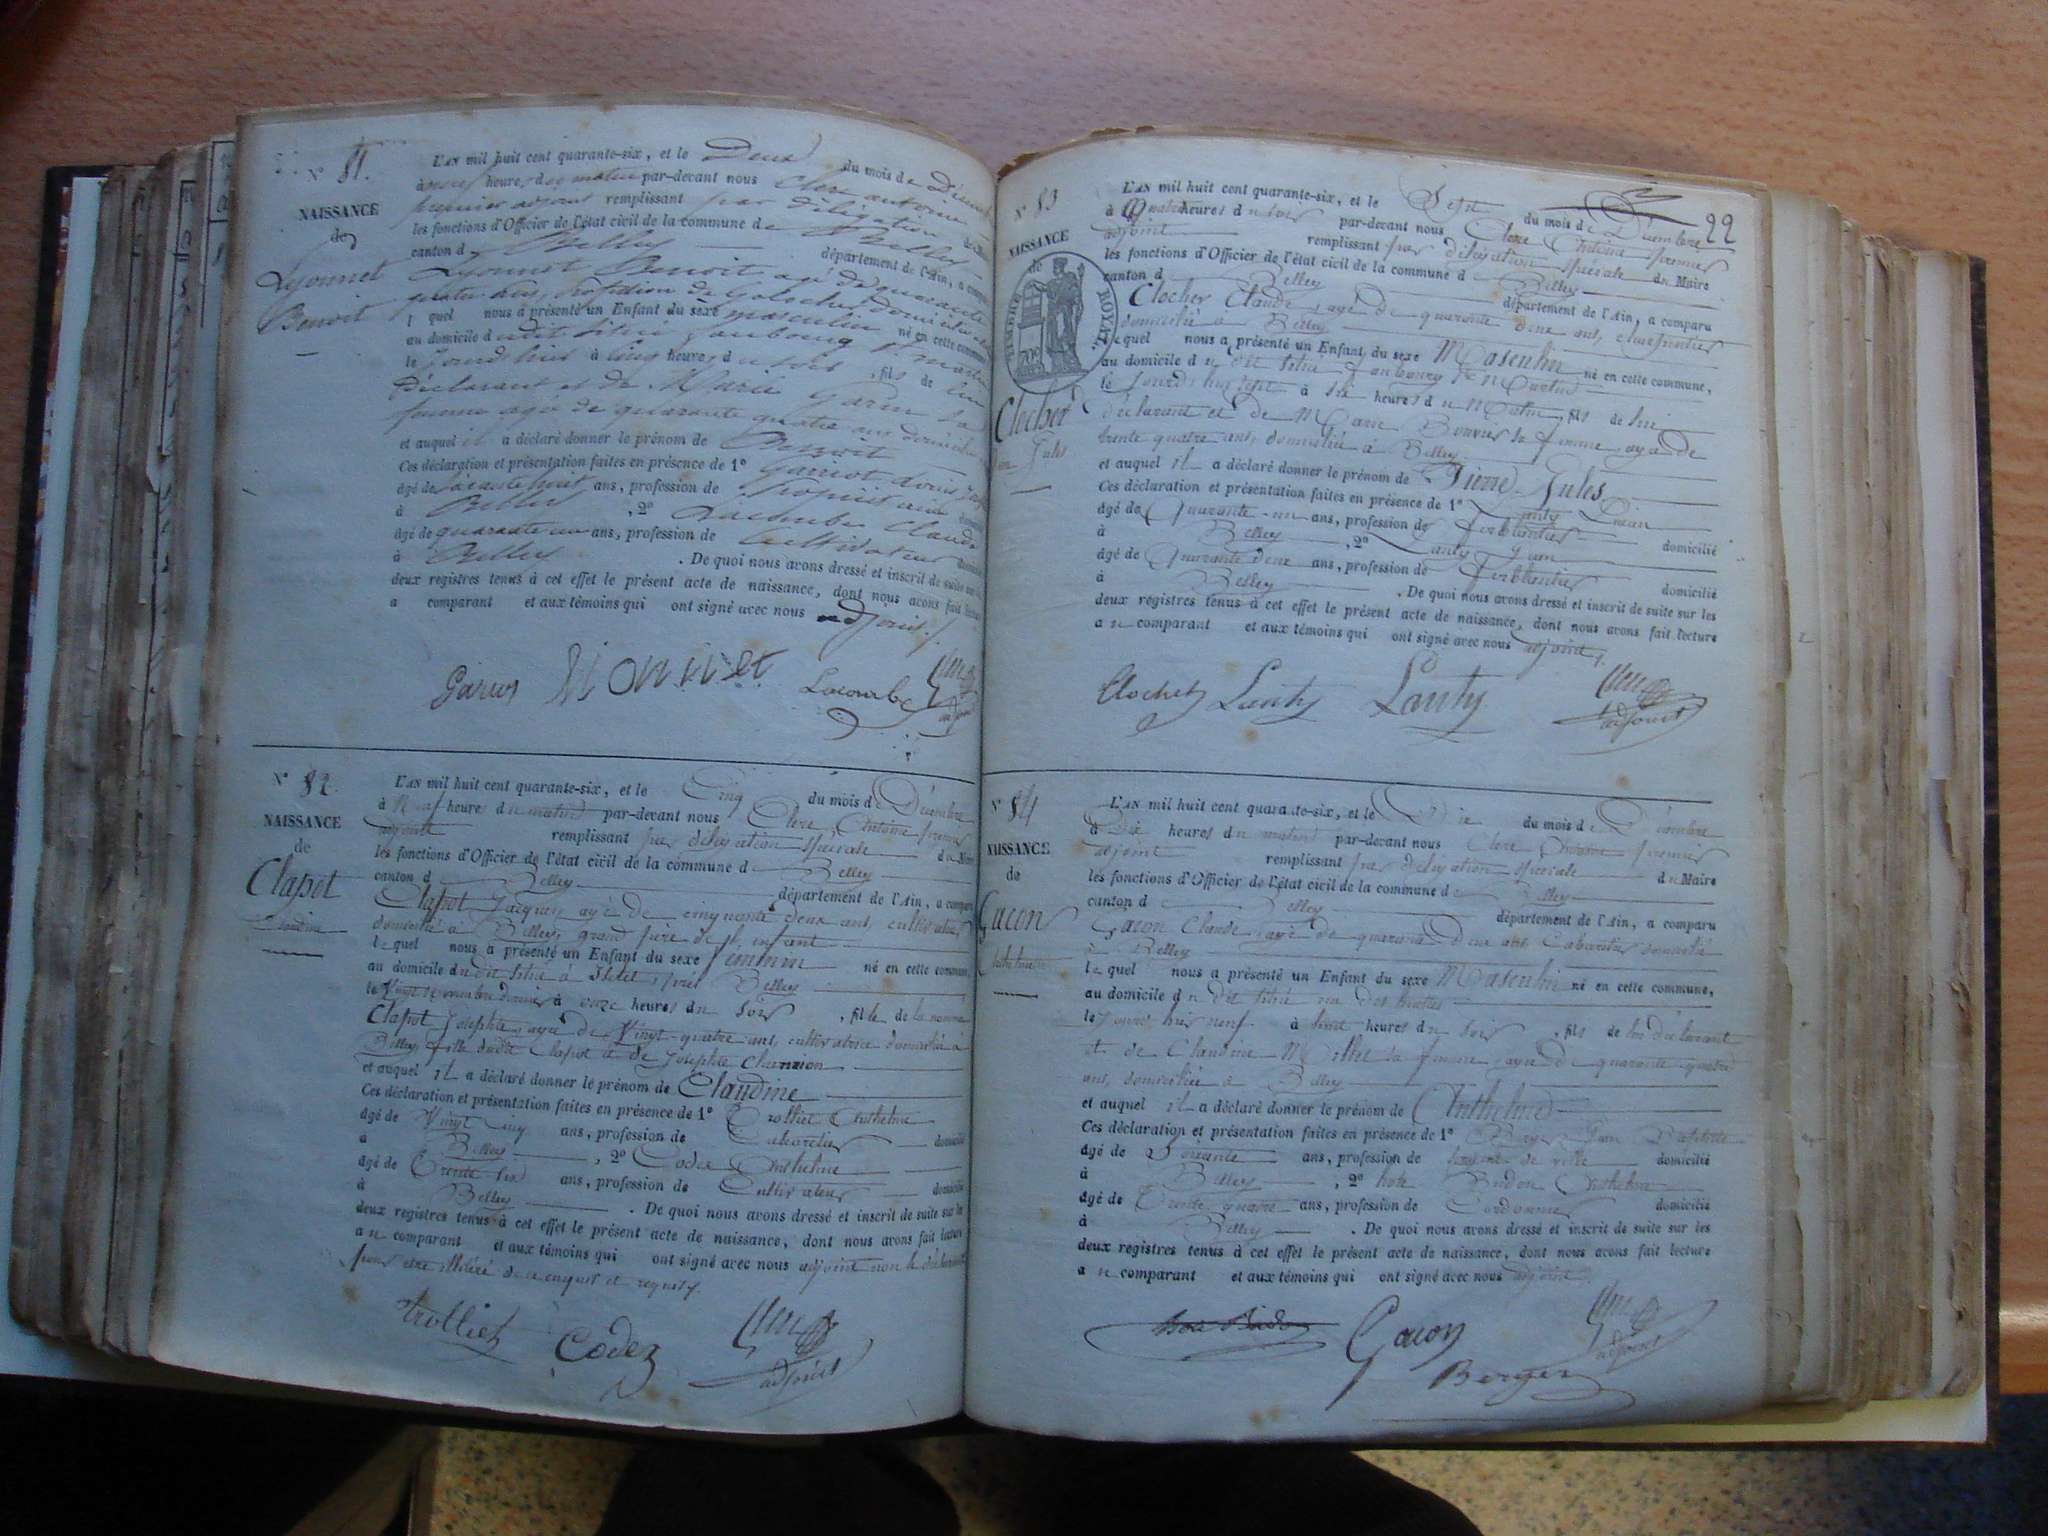 N° 81.
NAISSANCE
de
Lyonnet
Benoit
L'AN mil huit cent quarante-six, et le Deux du mois de Décembre
à heures du matin par-devant nous Clerc antoine
premier adjoint remplissant par délégation
les fonctions d'Officier de l'état civil de la commune de Belley
canton d Belley département de l'Ain, a comparu
Lyonnet Benoit agé de quarante
quatre ans, profession de Galocher, domicilié
l quel nous a présenté un Enfant du sexe masculin né en cette commune
au domicile dudit situé faubourg St martin
le jourd'hier à cinq heures du soir, fils de lui
déclarant et de Marie Garin sa
femme agé de quarante quatre ans domiciliée
et auquel il a déclaré donner le prénom de Benoit
Ces déclaration et présentation faites en présence de 1° Garriot
âgé de soixante huit ans, profession de Propriétaire domicilié
à Belley, 2° Lacombe Claude
âgé de quarante un ans, profession de Cultivateur domicilié
à Belley. De quoi nous avons dressé et inscrit de suite sur les
deux registres tenus à cet effet le présent acte de naissance, dont nous avons fait lecture
a comparant et aux témoins qui ont signé avec nous adjoint.
Lacombe
adjoint
N° 82.
NAISSANCE
de
Clapot
Claudine
L'AN mil huit cent quarante-six, et le Cinq du mois de Décembre
à Neuf heures du matin par-devant nous Clerc Antoine premier
adjoint remplissant par délégation spéciale du Maire
les fonctions d'Officier de l'état civil de la commune d Belley
canton d Belley département de l'Ain, a comparu
Clapot Jacques, agé de cinquante deux ans, cultivateur
domicilié à Belley, grand père de l'enfant
lequel nous a présenté un Enfant du sexe féminin né en cette commune,
au domicile dudit situé à près Belley
le Vingt novembre dernier à onze heures du soir, fille de la nommée
Clapot Josephte, agée de Vingt quatre ans, cultivatrice domiciliée à
Belley, fille dudit Clapot et de Josephte Charrion
et auquel il a déclaré donner le prénom de Claudine
Ces déclaration et présentation faites en présence de 1° Trolliet Anthelme
âgé de Vingt cinq ans, profession de Cabaretier domicilié
à Belley, 2° Codex Anthelme
âgé de Trente six ans, profession de Cultivateur domicilié
à Belley. De quoi nous avons dressé et inscrit de suite sur les
deux registres tenus à cet effet le présent acte de naissance, dont nous avons fait lecture
au comparant et aux témoins qui ont signé avec nous adjoint non le déclarant
pour être illitéré de ce enquis et requis.
trolliet Codex
adjoint
22
N° 83
NAISSANCE
de
TIMBRE ROYAL
70c
Clochet
Pierre Jules
L'AN mil huit cent quarante-six, et le Sept du mois de Décembre
à Quatre heures du soir par-devant nous Clerc Antoine premier
adjoint remplissant par délégation spéciale du Maire
les fonctions d'Officier de l'état civil de la commune d Belley
canton d Belley département de l'Ain, a comparu
Clochet Claude, agé de quarante deux ans, charpentier
domicilié à Belley
lequel nous a présenté un Enfant du sexe Masculin né en cette commune,
au domicile du dit situé faubourg St Martin
le jourd'hui sept à six heures du matin, fils de lui
déclarant et de Marie Bouvier sa femme, agée de
trente quatre ans, domiciliée à Belley
et auquel il a déclaré donner le prénom de Pierre Jules
Ces déclaration et présentation faites en présence de 1° Lanty
âgé de Quarante-un ans, profession de ferblantier domicilié
à Belley, 2° Lanty Jean
âgé de Quarante deux ans, profession de ferblantier domicilié
à Belley. De quoi nous avons dressé et inscrit de suite sur les
deux registres tenus à cet effet le présent acte de naissance, dont nous avons fait lecture
au comparant et aux témoins qui ont signé avec nous adjoint.
Clochet Lanty Lanty
adjoint
N° 84
NAISSANCE
de
Gacon
Anthelme
L'AN mil huit cent quarante-six, et le Dix du mois de Décembre
à Dix heures du matin par-devant nous Clerc Antoine premier
adjoint remplissant par délégation spéciale du Maire
les fonctions d'Officier de l'état civil de la commune de Belley
canton d Belley département de l'Ain, a comparu
Gacon Claude, agé de quarante deux ans Cabaretier domicilié
à Belley
lequel nous a présenté un Enfant du sexe Masculin né en cette commune,
au domicile du dit situé rue des
le jourd'hier neuf à heures du soir, fils de lui déclarant
et de Claudine Millet sa femme, agée de quarante quatre
ans, domiciliée à Belley
et auquel il a déclaré donner le prénom de Anthelme
Ces déclaration et présentation faites en présence de 1° Jean Baptiste
âgé de Soixante ans, profession de sergent de ville domicilié
à Belley, 2° Budon Anthelme
âgé de Trente quatre ans, profession de Cordonnier domicilié
à Belley. De quoi nous avons dressé et inscrit de suite sur les
deux registres tenus à cet effet le présent acte de naissance, dont nous avons fait lecture
au comparant et aux témoins qui ont signé avec nous adjoint.
Gacon
adjoint
Berger